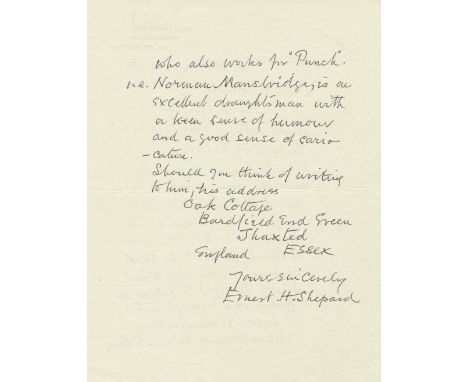 who also works for "Punch".
i.e. Norman Mansbridge, is an
excellent draughtsman with
a keen sense of humour
and a good sense of caric
-cature.
Should you think of writing
to him, his address
Oak Cottage
Bardfield End Green
Thaxted
England Essex
Yours sincerely
Ernest H. Shepard